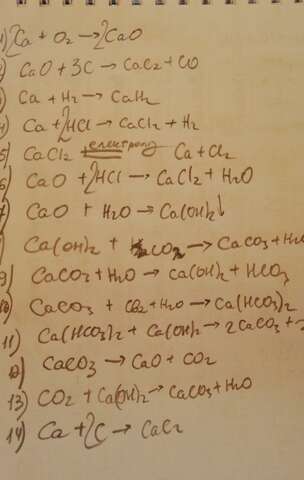 1) 2Ca + O2 → 2CaO
2) CaO + 3C → CaC2 + CO
3) Ca + H2 → CaH2
4) Ca + 2HCl → CaCl2 + H2
5) CaCl2 електролиз Ca + Cl2
6) CaO + 2HCl → CaCl2 + H2O
7) CaO + H2O → Ca(OH)2↓
Ca(OH)2 + CO2 → CaCO3 + H2O
9) CaCO3 + H2O → Ca(OH)2 + HCO3
10) CaCO3 + CO2 + H2O → Ca(HCO3)2
11) Ca(HCO3)2 + Ca(OH)2 → 2CaCO3 + 2
12) CaCO3 → CaO + CO2
13) CO2 + Ca(OH)2 → CaCO3 + H2O
14) Ca + 2C → CaC2